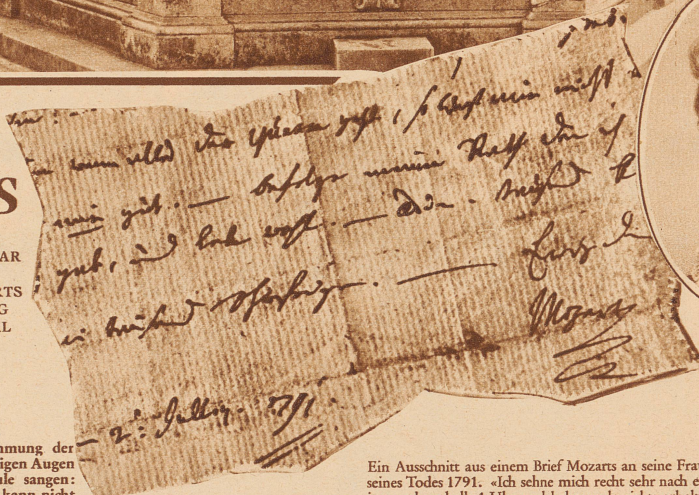 wenn alles der Queere geht; so liegt mir nichts
mir gut. — befolge meinen Rath den ich
gab, und lebe wohl. — Adieu. tausend
tausend Ohrfeigen. — Ewig dein
Mozart
2: 791
S
AR
RTS
G
L
mmung der
igen Augen
ule sangen:
kann nicht
Ein Ausschnitt aus einem Brief Mozarts an seine Frau
seines Todes 1791. «Ich sehne mich recht sehr nach